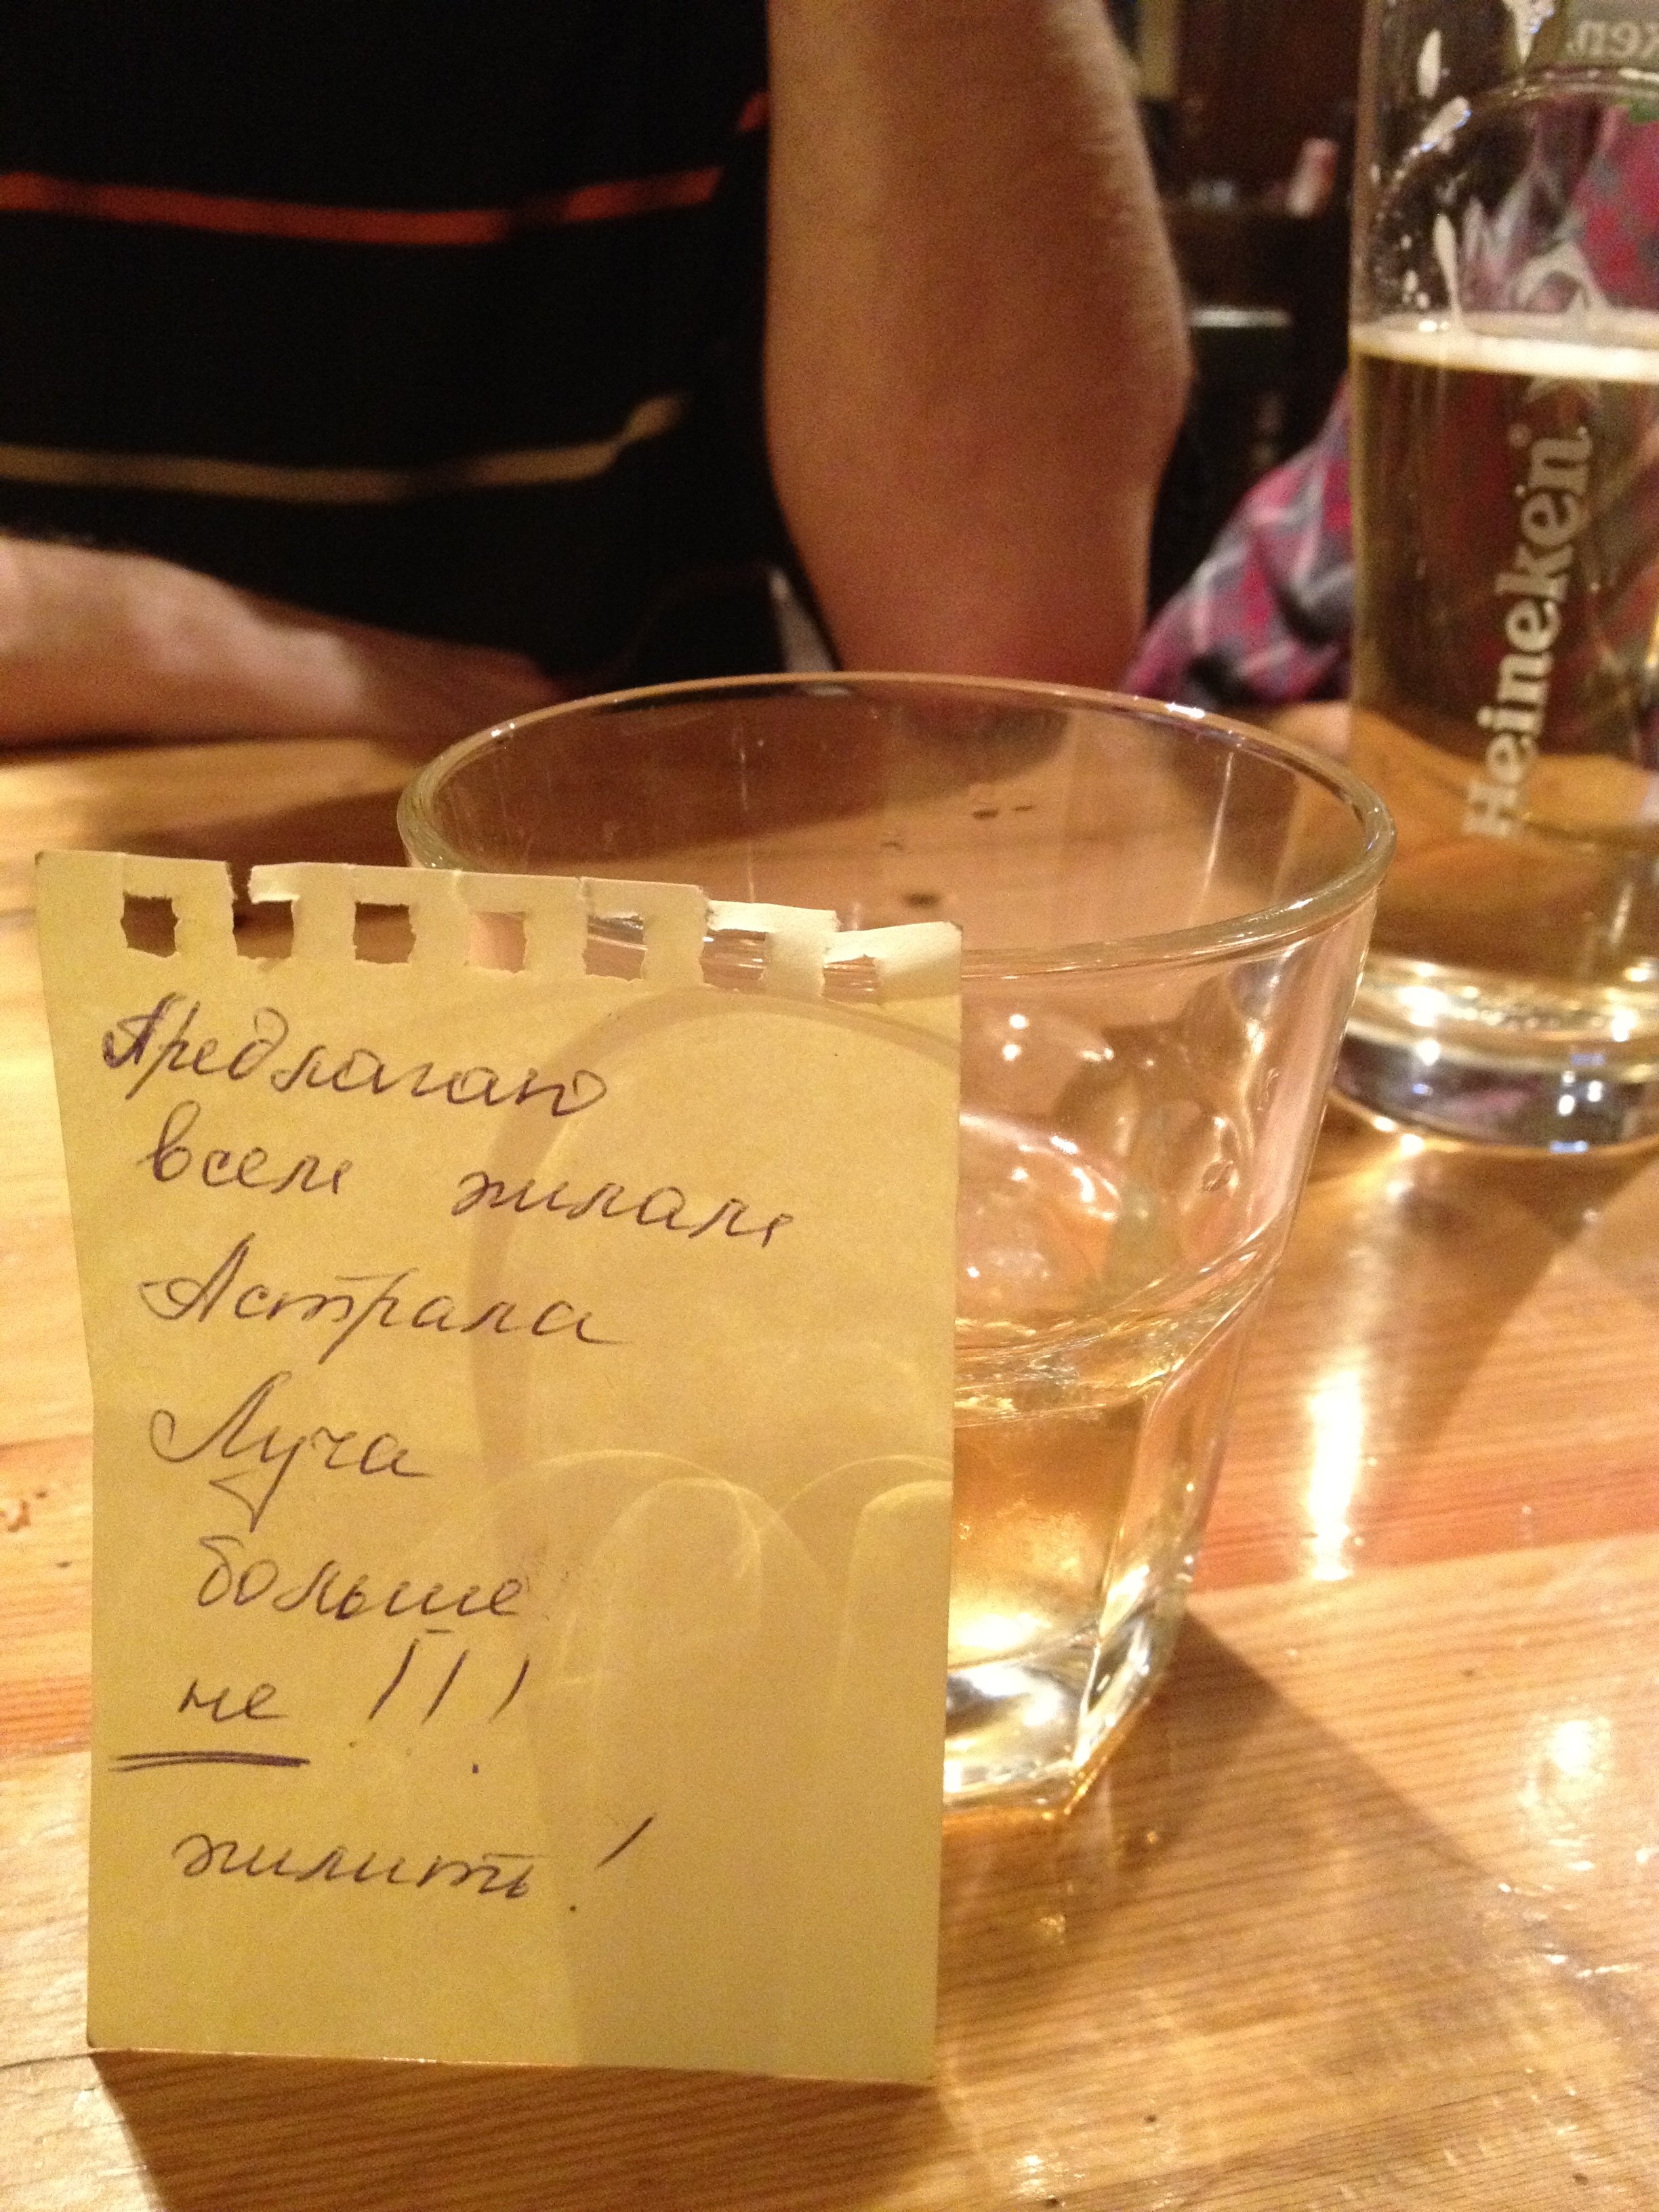 Предлагаю
всем жилам
Астрала
Луча
больше
не !!!
жилить !
Heineken
ken.